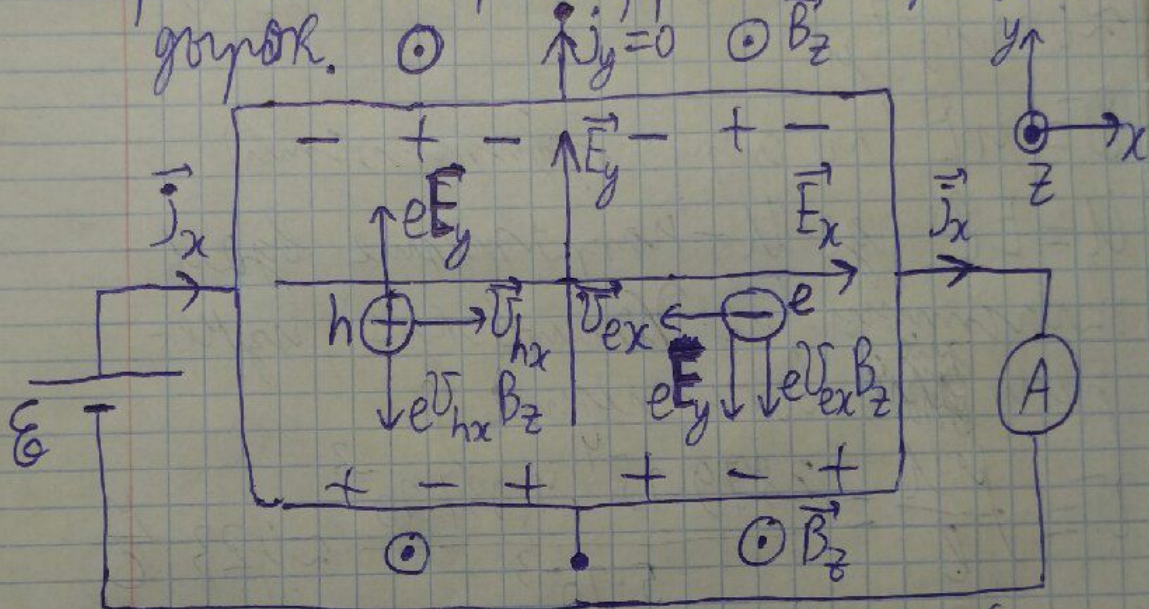 дырок. ⊙ j⃗y=0 ⊙ B⃗z
y
x
z
− + − E⃗y − + −
j⃗x eEy E⃗x j⃗x
h + v⃗hx v⃗ex − e
evhxBz eEy evexBz
ℰ A
+ − + + − +
⊙ ⊙ B⃗z